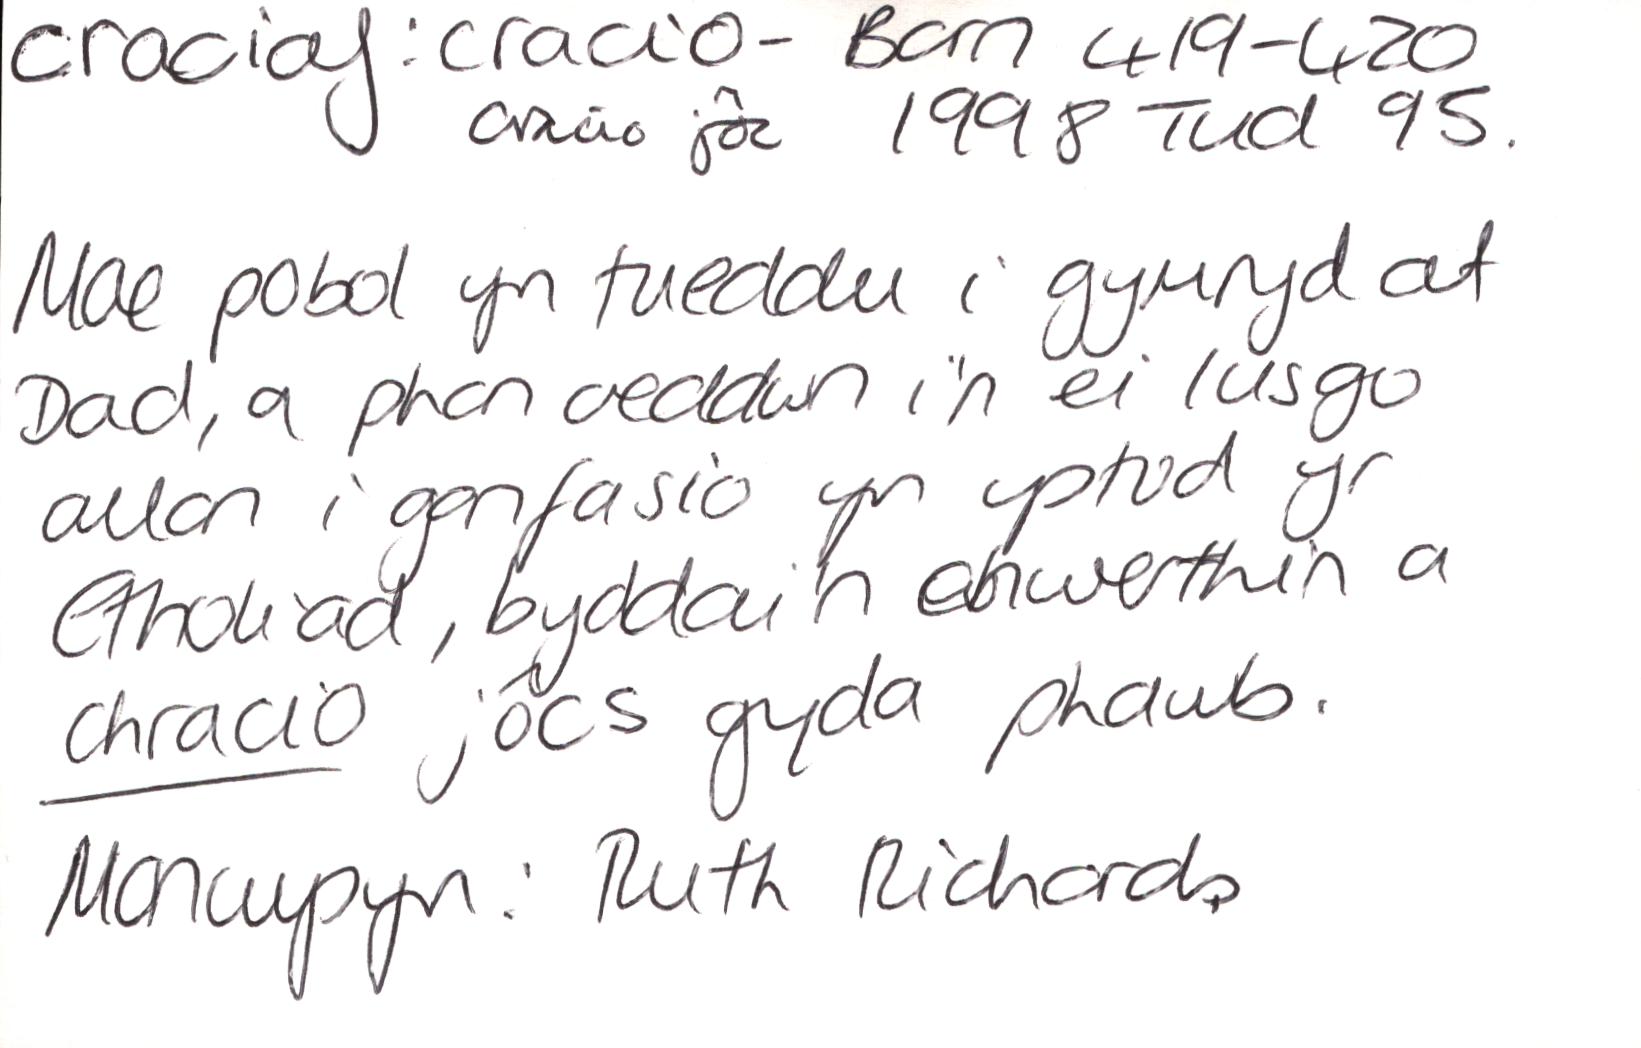 craciaf: cracio - Barn 419-420
cracio jôc 1998 Tud 95.
Mae pobol yn tueddu i gymryd at
Dad, a phan oeddwn i'n ei lusgo
allan i ganfasio yn ystod yr
Etholiad, byddai'n chwerthin a
chracio jôcs gyda phawb.
Ruth Richards